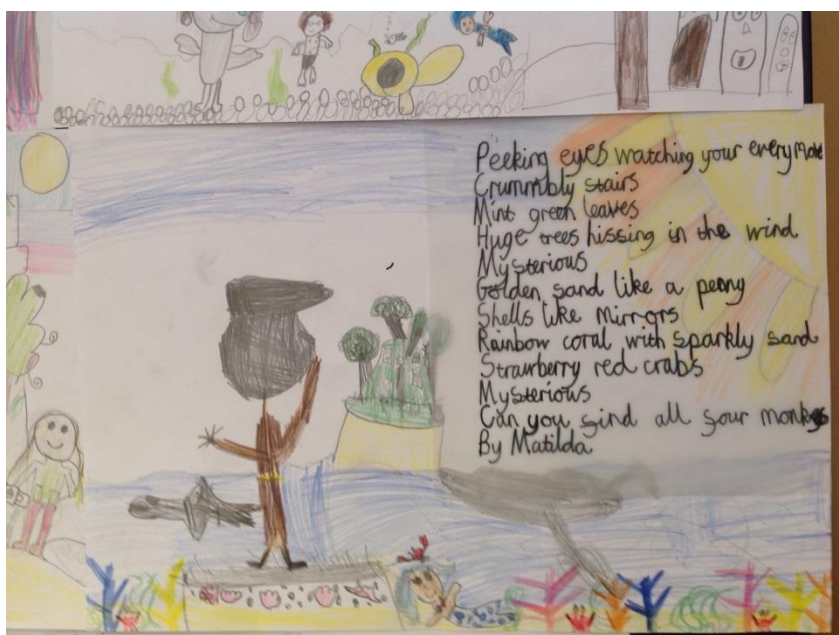 Peeking eyes watching your every move
Crummbly stairs
Mint green leaves
Huge trees hissing in the wind
Mysterious
Golden sand like a penny
Shells like mirrors
Rainbow coral with sparkly sand
Strawberry red crabs
Mysterious
Can you find all four monkeys
By Matilda